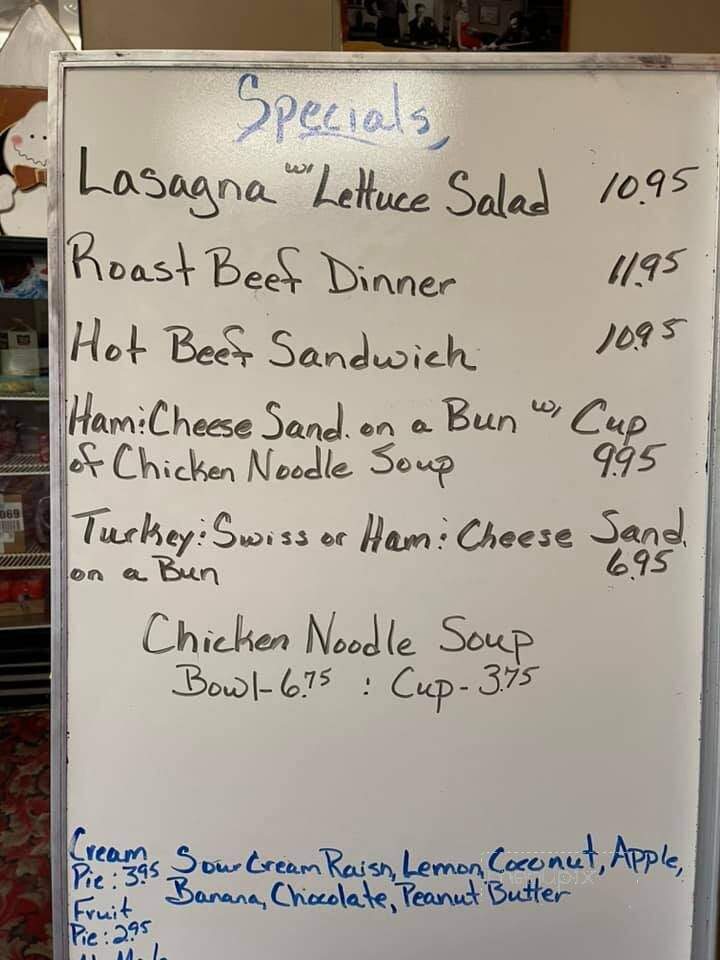 Specials
Lasagna w/ Lettuce Salad 10.95
Roast Beef Dinner 11.95
Hot Beef Sandwich 10.95
Ham : Cheese Sand. on a Bun w/ Cup
of Chicken Noodle Soup 9.95
Turkey : Swiss or Ham : Cheese Sand.
on a Bun 6.95
Chicken Noodle Soup
Bowl - 6.75 : Cup - 3.75
Cream
Pie : 3.95
Sour Cream Raisn, Lemon, Coconut, Apple,
Banana, Chocolate, Peanut Butter
Fruit
Pie : 2.95
069
menupix